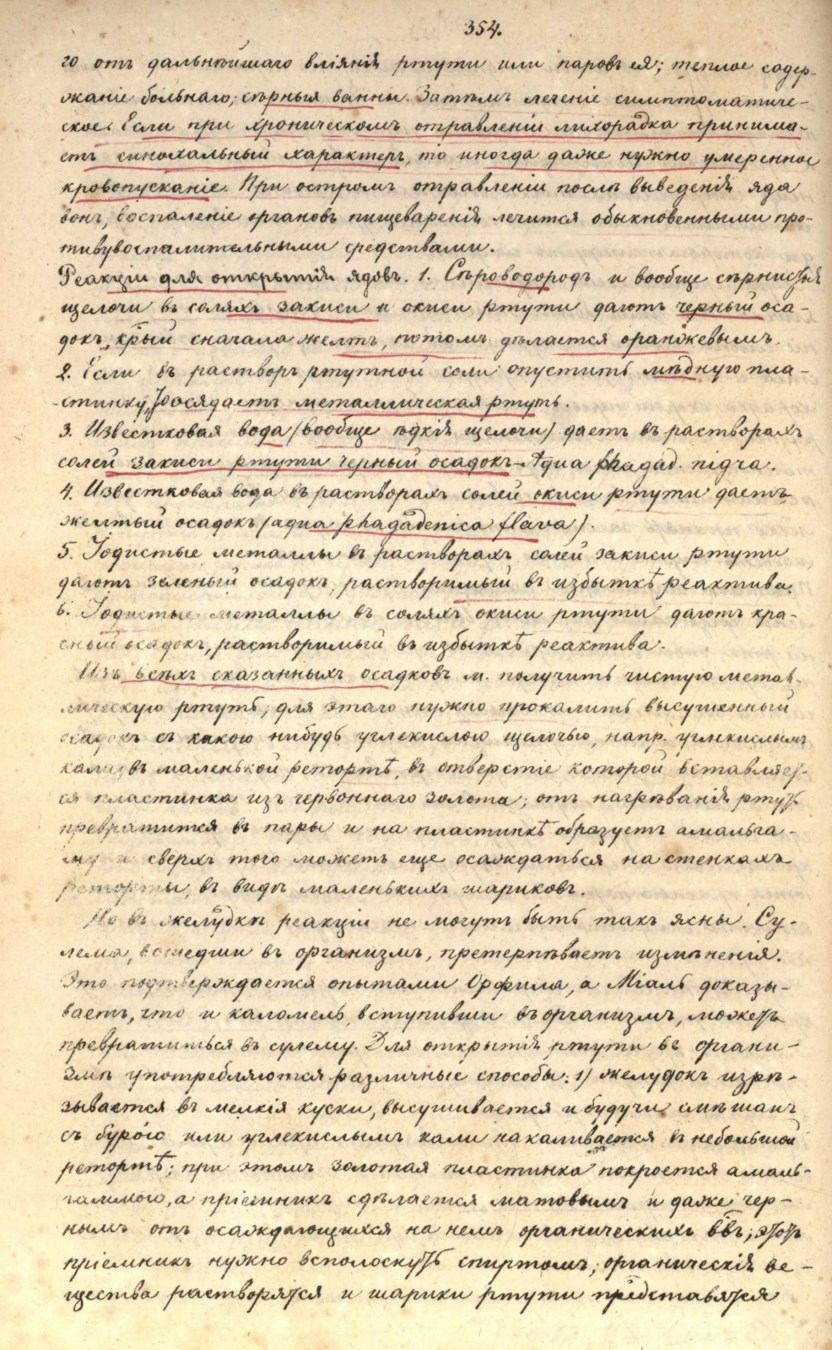 354.
го отъ дальнѣйшаго вліянія ртути или паровъ ея; теплое содер-
жаніе больнаго; сѣрныя ванны. Затѣмъ леченіе симптоматиче-
ское. Если при хроническомъ отравленіи лихорадка принима-
етъ синохальный характеръ, то иногда даже нужно умеренное
кровопусканіе. При остромъ отравленіи послѣ выведенія яда
вонъ, воспаленіе органовъ пищеваренія лечится обыкновенными про-
тивувоспалительными средствами.
Реакціи для открытія ядовъ. 1. Сѣроводородъ и вообще сѣрнистыя
щелочи въ соляхъ закиси и окиси ртути даютъ черный оса-
докъ, к̅рый сначала желтъ, потомъ дѣлается оранжевымъ.
2. Если въ растворъ ртутной соли опустить мѣдную пла-
стинку, осядаетъ металлическая ртуть.
3. Известковая вода (вообще ѣдкія щелочи) даетъ въ растворахъ
солей закиси ртути черный осадокъ. Aqua phagad. nigra.
4. Известковая вода въ растворахъ солей окиси ртути даетъ
желтый осадокъ (aqua phagadenica flava).
5. Іодистые металлы въ растворахъ солей закиси ртути
даютъ зеленый осадокъ, растворимый въ избыткѣ реактива.
6. Іодистые металлы въ соляхъ окиси ртути даютъ кра-
сный осадокъ, растворимый въ избыткѣ реактива.
Изъ всѣхъ сказанныхъ осадковъ м. получить чистую метал-
лическую ртуть; для этаго нужно прокалить высушенный
осадокъ съ какою нибудь углекислою щелочью, напр. углекислымъ
кали въ маленькой ретортѣ, въ отверстіе которой вставляет-
ся пластинка изъ червоннаго золота; отъ нагрѣванія ртуть
превратится въ пары и на пластинкѣ образуетъ амальга-
му и сверхъ того можетъ еще осаждаться на стенкахъ
реторты, въ видѣ маленькихъ шариковъ.
Но въ желудкѣ реакціи не могутъ быть такъ ясны. Су-
лема, вошедши въ организмъ, претерпѣваетъ измѣненія.
Это подтверждается опытами Орфила, а Міаль доказы-
ваетъ, что и каломель, вступивши въ организмъ, можетъ
превратиться въ сулему. Для открытія ртути въ органи-
змѣ употребляются различные способы: 1) желудокъ изрѣ-
зывается въ мелкія куски, высушивается и будучи смѣшанъ
съ бурою или углекислымъ кали накаливается въ небольшой
ретортѣ; при этомъ золотая пластинка покроется амаль-
гамою, а пріемникъ сдѣлается матовымъ и даже чер-
нымъ отъ осаждающихся на немъ органическихъ в̅въ; этотъ
пріемникъ нужно всполоскуть спиртомъ, органическія ве-
щества растворятся и шарики ртути представятся